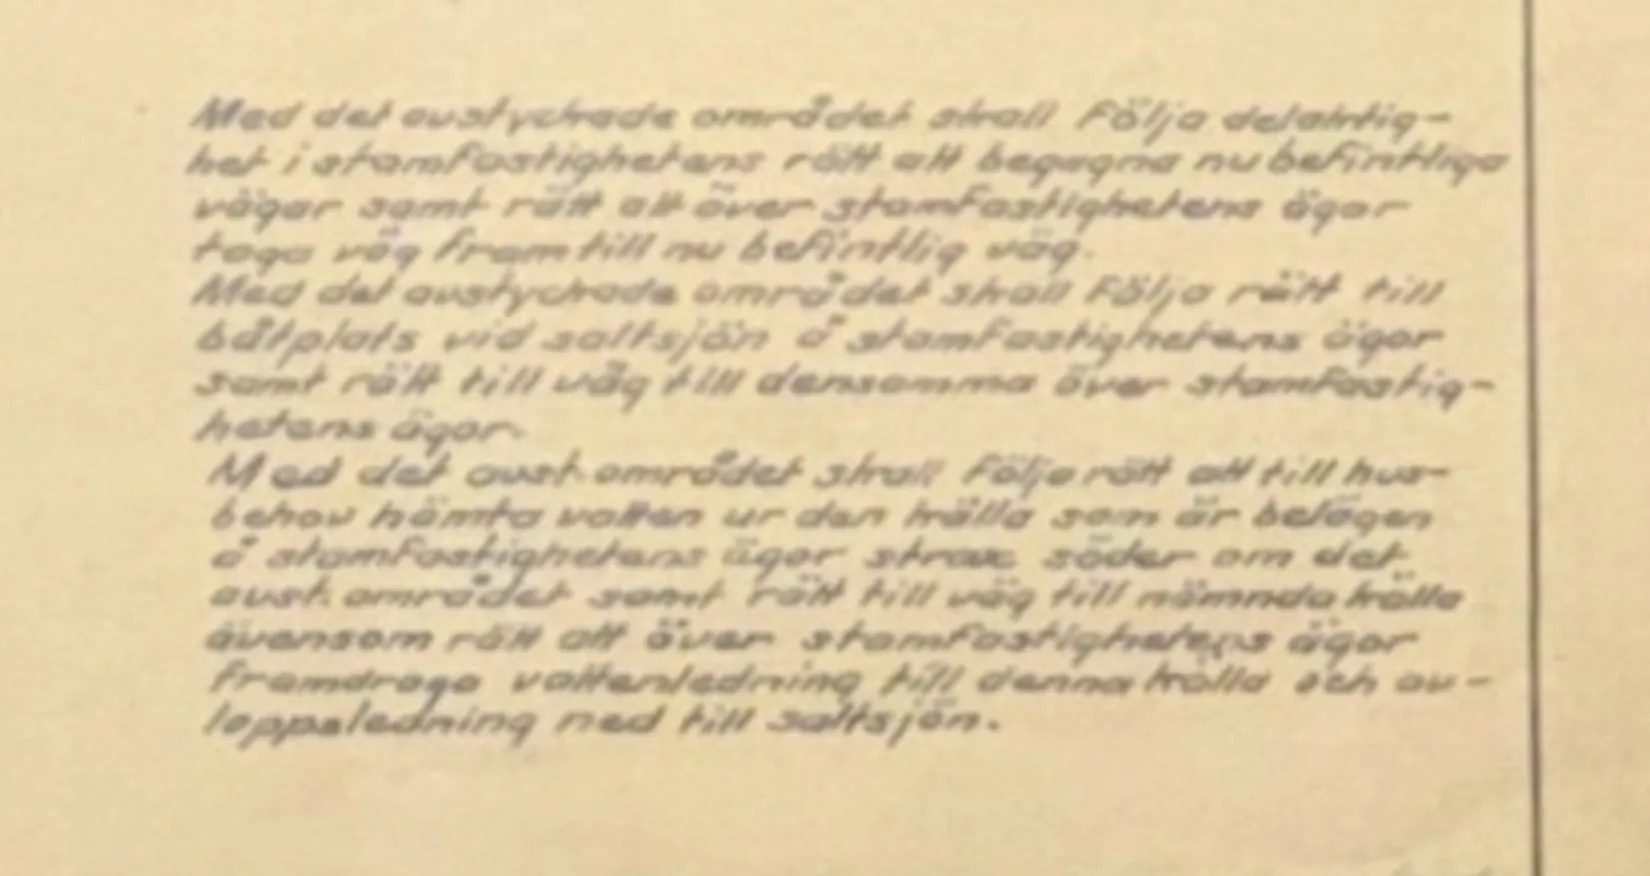 Med det avstyckade området skall följa delaktig-
het i stamfastighetens rätt att begagna nu befintliga
vägar samt rätt att över stamfastighetens ägor
taga väg fram till nu befintlig väg.
Med det avstyckade området skall följa rätt till
båtplats vid saltsjön å stamfastighetens ägor
samt rätt till väg till densamma över stamfastig-
hetens ägor.
Med det avst. området skall följa rätt att till hus-
behov hämta vatten ur den källa som är belägen
å stamfastighetens ägor strax söder om det
avst. området samt rätt till väg till nämnda källa
ävensom rätt att över stamfastighetens ägor
framdraga vattenledning till denna källa och av-
loppsledning ned till saltsjön.